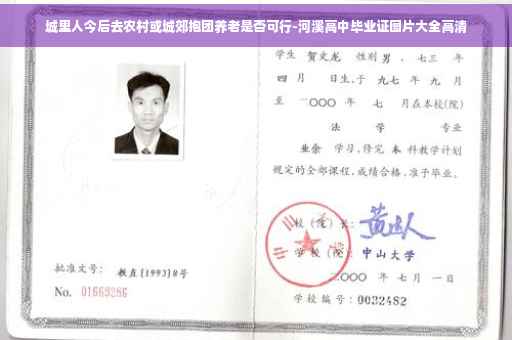 城里人今后去农村或城郊抱团养老是否可行-河溪高中毕业证图片大全高清
学生 贺文龙 性别 男 、七三 年
四 月 日生,于 九七 年 九 月
至 二〇〇〇 年 七 月在本校(院)
法 学 专业
业余 学习,修完 本 科教学计划
规定的全部课程,成绩合格,准予毕业。
校(院)长:
学校(院): 中山大学
批准文号: 教直[1993]8号
二〇〇〇 年 七 月 一 日
No. 01669286
学校编号: 0032482